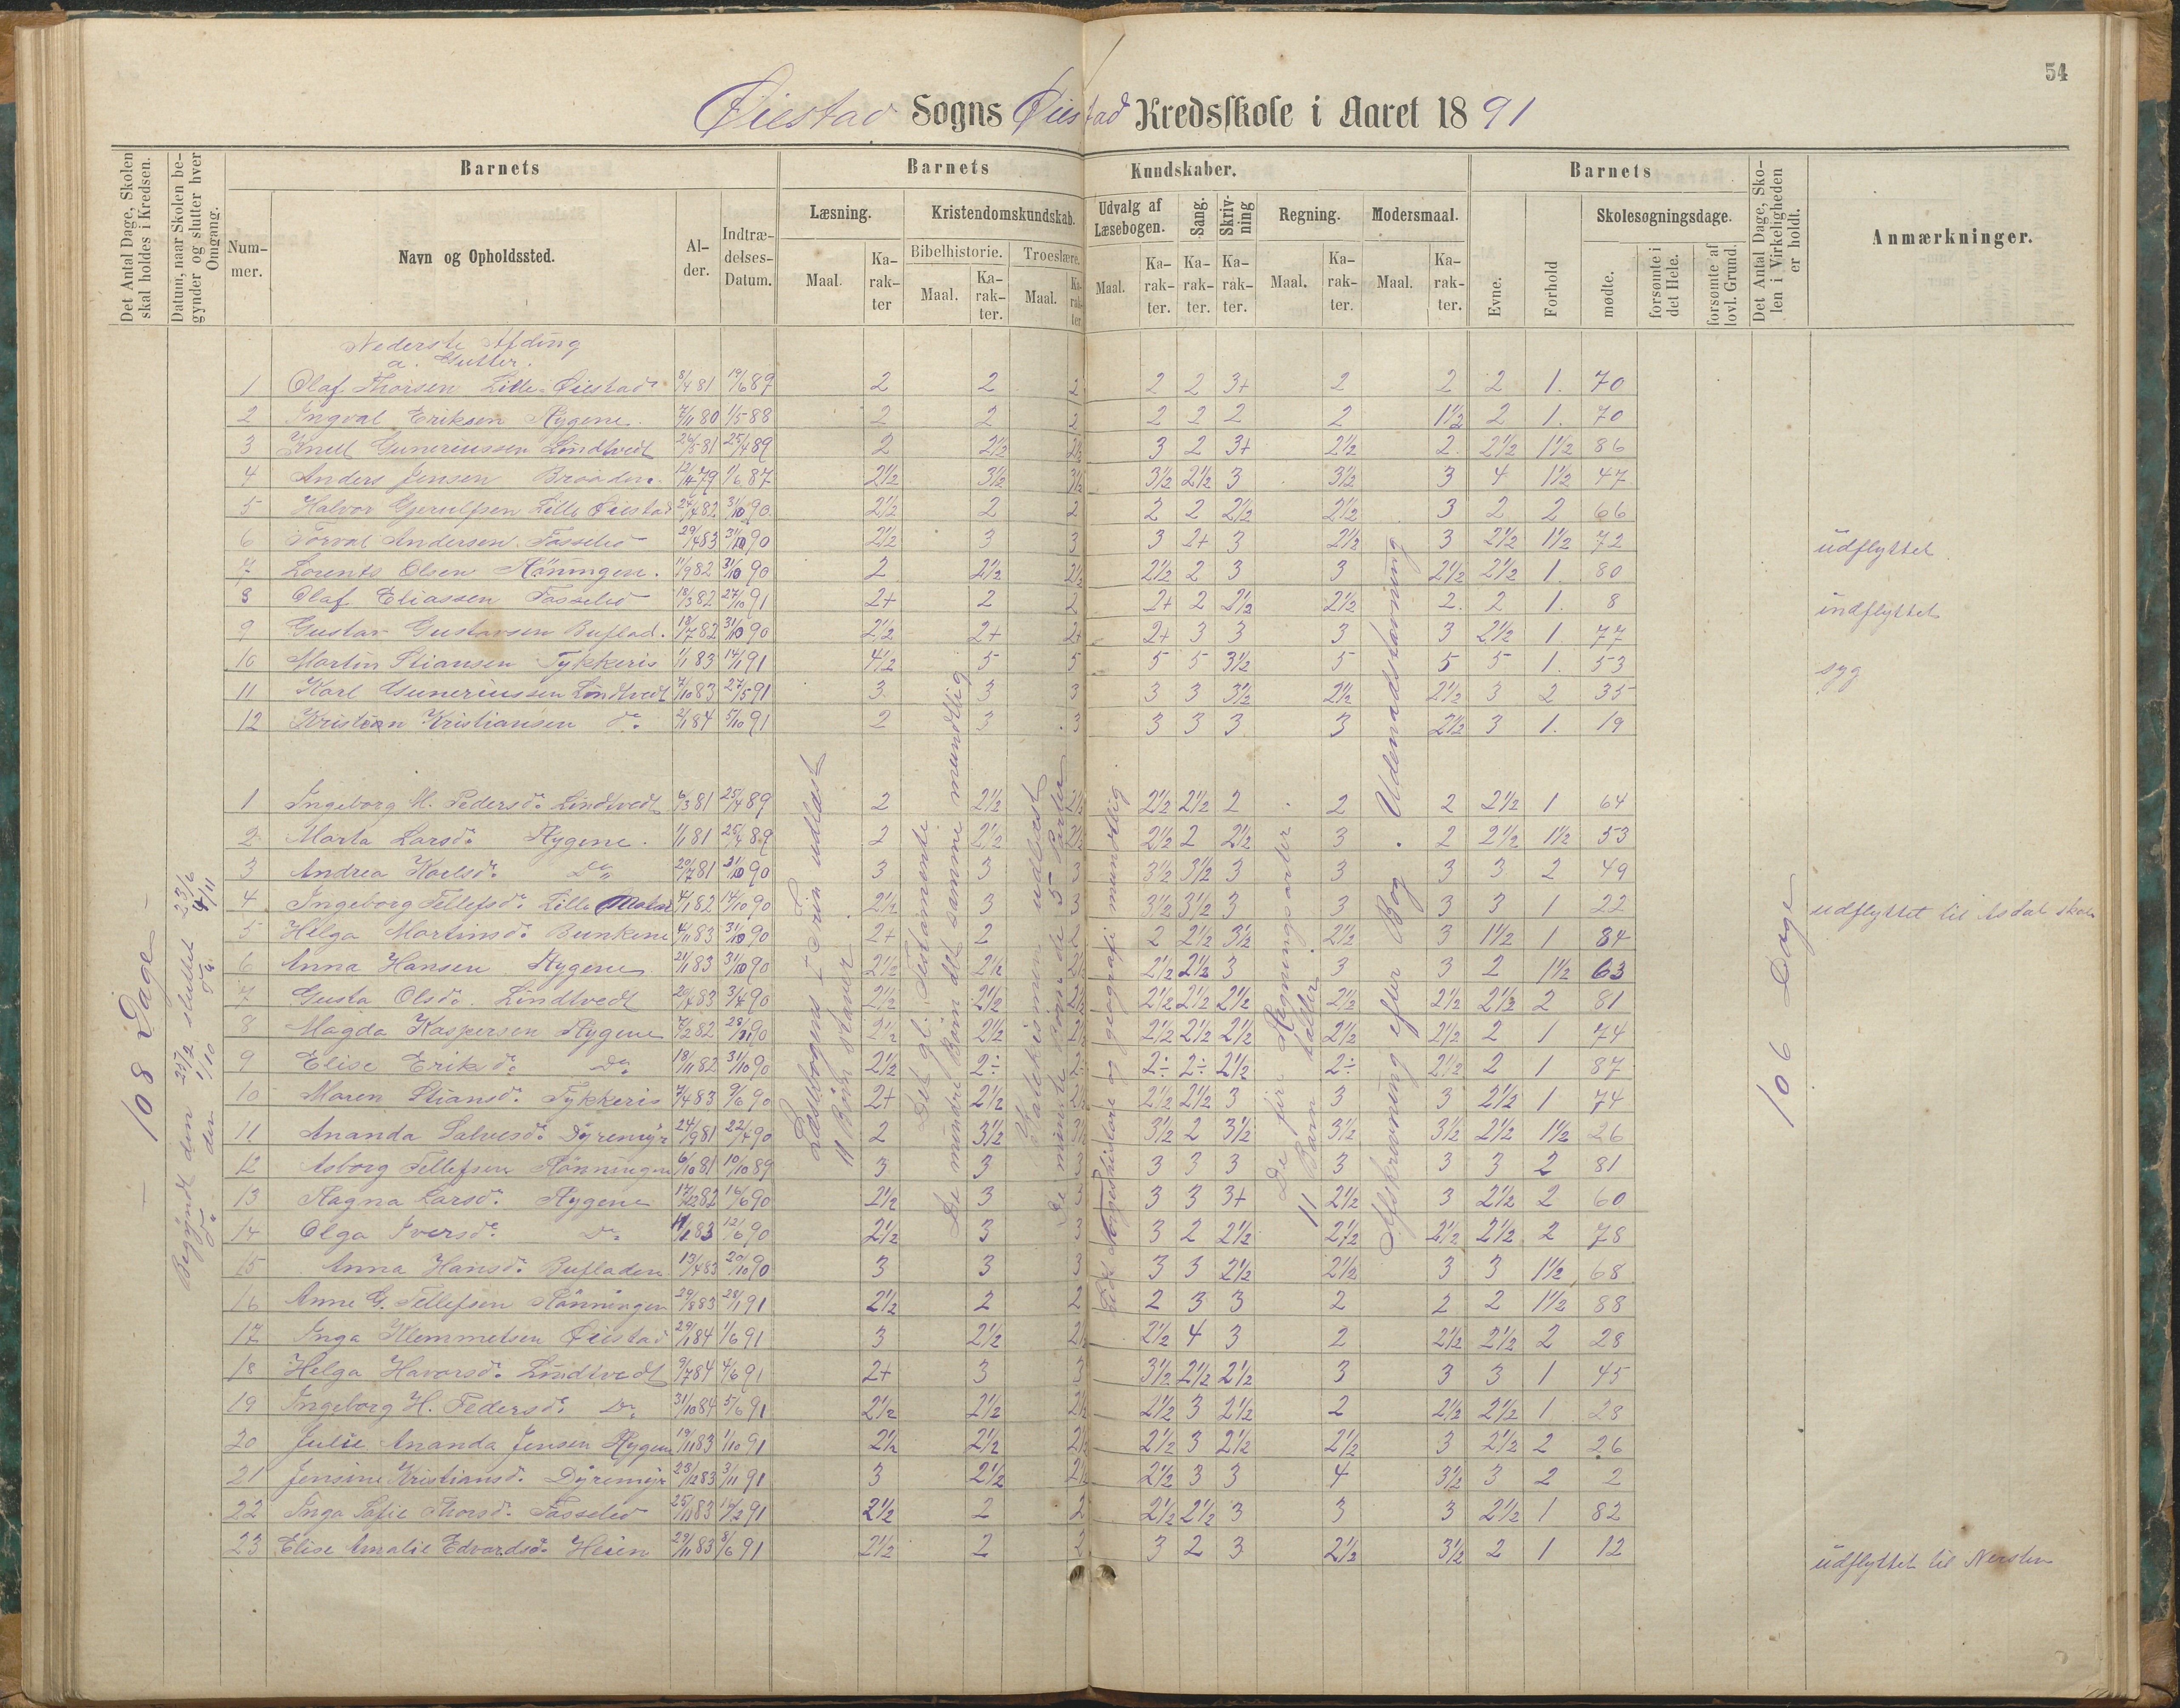 54
Øiestad Sogns Øiestad Kredsskole i Aaret 1891
Det Antal Dage, Skolen skal holdes i Kredsen.
Datum, naar Skolen begynder og slutter hver Omgang.
Barnets
Barnets Kundskaber.
Barnets
Det Antal Dage, Skolen i Virkeligheden er holdt.
Anmærkninger.
Nummer.
Navn og Opholdssted.
Alder.
Indtrædelses-Datum.
Læsning.
Kristendomskundskab.
Udvalg af Læsebogen.
Sang.
Skrivning
Regning.
Modersmaal.
Evne.
Forhold
Skolesøgningsdage.
Bibelhistorie.
Troeslære.
Maal.
Karakter
Maal.
Karakter.
Maal.
Karakter
Maal.
Karakter.
Karakter.
Karakter.
Maal.
Karakter.
Maal.
Karakter.
mødte.
forsømte i det Hele.
forsømte af lovl. Grund.
108 Dage
Begyndt den 25/2 sluttet 23/6
do den 1/10 do 4/11
Nederste Afding
a. Gutter.
1 Olaf Thorsen Lille-Øiestad 8/4 81 19/6 89 2 2 2 2 2 3+ 2 2 2 1. 70
2 Ingval Eriksen Rygene. 7/11 80 1/5 88 2 2 2 2 2 2 2 1½ 2 1. 70
3 Knut Gunerussen Lindtvedt 26/5 81 25/4 89 2 2½ 2½ 3 2 3+ 2½ 2. 2½ 1½ 86
4 Anders Jensen Braaden. 12/4 79 1/6 87 2½ 3½ 3½ 3½ 2½ 3 3½ 3 4 1½ 47
5 Halvor Gjerulfsen Lille Øiestad 24/4 82 31/10 90. 2½ 2 2 2 2 2½ 2½ 3 2 2 66
6 Torval Andersen Fosselid 29/4 83 31/10 90 2½ 3 3 3 2+ 3 2½ 3 2½ 1½ 72 udflyttet
7 Lorents Olsen Rønningen. 11/9 82 31/10 90 2 2½ 2½ 2½ 2 3 3 2½ 2½ 1. 80
8 Olaf Eliassen Fosselid 18/3 82 27/10 91 2+ 2 2 2+ 2 2½ 2½ 2. 2 1. 8 indflyttet
9 Gustav Gustavsen Buflad. 19/7 82 31/10 90 2½ 2+ 2+ 2+ 3 3 3 3 2½ 1 77
10 Martin Stiansen Tykkeris 1/1 83 14/1 91 4½ 5 5 5 5 3½ 5 5 5 1. 53 syg
11 Karl Guneriussen Lindtvedt 7/10 83 27/5 91 3 3 3 3 3 3½ 2½ 2½ 3 2 35
12 Kristian Kristiansen do 2/1 84 5/10 91 2 3 3 3 3 3 3 2½ 3 1. 19
1 Ingeborg M. Pedersdr. Lindtvedt 6/3 81 25/4 89 2 2½ 2½ 2½ 2½ 2 2 2 2½ 1 64
2 Marta Larsdr. Rygene. 1/1 81 25/4 89 2 2½ 2½ 2½ 2 2½ 3 2 2½ 1½ 53
3 Andrea Karlsdr. Do 20/7 81 31/10 90 3 3 3 3½ 3½ 3 3 3 3 2 49
4 Ingeborg Tellefsdr. Lille 4/1 82 14/10 90 2½ 3 3 3½ 3½ 3 3 3 3 1 22 udflyttet til Asdal skole
5 Helga Martinsdr. Bunkene 4/11 83 31/10 90 2+ 2 2 2 2½ 3½ 2½ 3 1½ 1 84
6 Anna Hansen Rygene 21/1 83 31/10 90 2½ 2½ 2½ 2½ 2½ 3 3 3 2 1½ 63
7 Gusta Olsdr. Lindtvedt 20/4 83 3/4 90 2½ 2½ 2½ 2½ 2½ 2½ 2½ 2½ 2½ 2 81
8 Magda Kaspersen Rygene 7/2 82 28/ 90 2½ 2½ 2½ 2½ 2½ 2½ 2½ 2½ 2 1 74
9 Elise Eriksdr. Do 18/11 82 31/10 90 2½ 2÷ 2÷ 2÷ 2÷ 2½ 2÷ 2½ 2 1 87
10 Maren Stiansdr. Tykkeris 7/4 83 9/6 90 2+ 2½ 2½ 2½ 2½ 3 3 3 2½ 1 74
11 Ananda Salvesdr. Dyremyr 24/9 81 22/4 90 2 3½ 3½ 3½ 2 3½ 3½ 3½ 2½ 1½ 26
12 Asborg Tellefsen Rønningen 6/10 81 10/10 89 3 3 3 3 3 3 3 3 3 2 81
13 Ragna Larsdr. Rygene 17/12 82 16/6 90 2½ 3 3 3 3 3+ 2½ 3 2½ 2 60
14 Olga Iversdr. Do 83 12/6 90 2½ 3 3 3 2 2½ 2½ 2½ 2½ 2 78
15 Anna Hansdr. Bufladen 13/4 83 20/10 90 3 3 3 3 3 2½ 2½ 3 3 1½ 68
16 Anne G. Tellefsen Rønningen 29/8 83 28/1 91 2½ 2 2 2 3 3 2 2 2 1½ 88
17 Inga Klemmetsen Øiestad 29/1 84 1/6 91 3 2½ 2½ 2½ 4 3 2 2½ 2½ 2 28
18 Helga Havorsdr. Lindtvedt 9/7 84 4/6 91 2+ 3 3 3½ 2½ 2½ 3 3 3 1 45
19 Ingeborg H. Pedersdr. Do 31/10 84 5/6 91 2½ 2½ 2½ 2½ 3 2½ 2 2½ 2½ 1 28
20 Julie Ananda Jensen Rygene 19/11 83 1/10 91 2½ 2½ 2½ 2½ 3 2½ 2½ 3 2½ 2 26
21 Jensine Kristiansdr. Dyremyr 23/12 83 3/11 91 3 2½ 2½ 2½ 3 3 4 3½ 3 2 2
22 Inga Sofie Thorsdr. Fosselid 25/11 83 16/2 91 2½ 2 2 2½ 2½ 3 3 3 2½ 1 82
23 Elise Amalie Edvardsdr. Heien 29/11 83 8/6 91 2½ 2 2 3 2 3 2½ 3½ 2 1 12 udflyttet til Nersten
Læsebogens I Trin udlæst
11 Børn staver
Det gl. Testamente
De mindre Børn det samme mundtlig
Katekismen udlæst
De mindste Børn de 5 Parter
Lidt Norgeshistorie og geografi mundtlig
De fire Regningsarter
11 Barn tæller
Afskrivning efter Bog. Udenadstavning
106 Dage